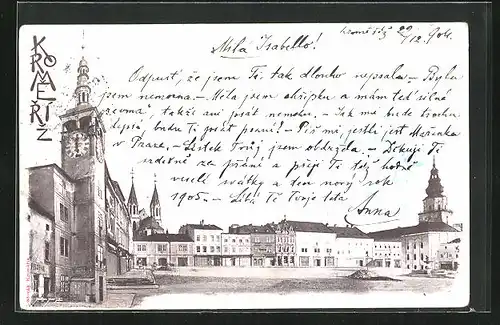 KROMĚŘÍŽ
Kroměříž 29/12 904.
Milá Isabello!
Odpusť, že jsem Ti tak dlouho nepsala. – Byla
jsem nemocna. – Měla jsem chřipku a mám teď silné
takže ani psát nemohu. – Jak mě bude trochu
lépe, budu Ti psát psaní! – Piš mě, jestli jest Mařenka
v Praze. – Lístek Tvůj jsem obdržela. – Děkuji Ti
srdečně za přání a přeji Ti též hodně
veselé svátky a ten nový rok
1905. – Líbá Tě Tvoje teta
Anna